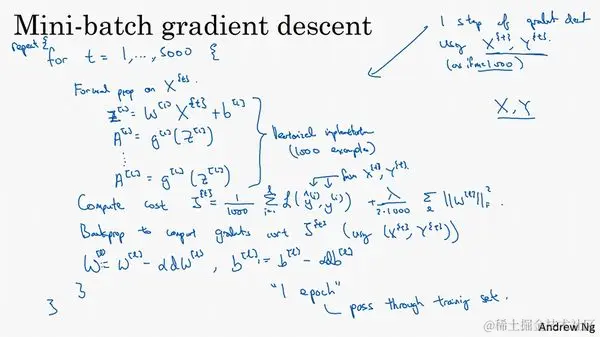 Mini-batch gradient descent
repeat {
for t = 1, ..., 5000 {
Forward prop on X^{t}.
Z^[1] = W^[1] X^{t} + b^[1]
A^[1] = g^[1](Z^[1])
⋮
A^[L] = g^[L](Z^[L])
Vectorized implementation
(1000 examples)
Compute cost J^{t} = 1/1000 Σ_{i=1}^{l} L(ŷ^(i), y^(i)) + λ/(2·1000) Σ_l ||W^[l]||_F^2.
from X^{t}, Y^{t}.
Backprop to compute gradients wrt J^{t} (using (X^{t}, Y^{t}))
W^[l] = W^[l] - αdW^[l], b^[l] = b^[l] - αdb^[l]
}
}
"1 epoch"
pass through training set.
1 step of gradient descent
using X^{t}, Y^{t}.
(as if m=1000)
X, Y
@稀土掘金技术社区
Andrew Ng